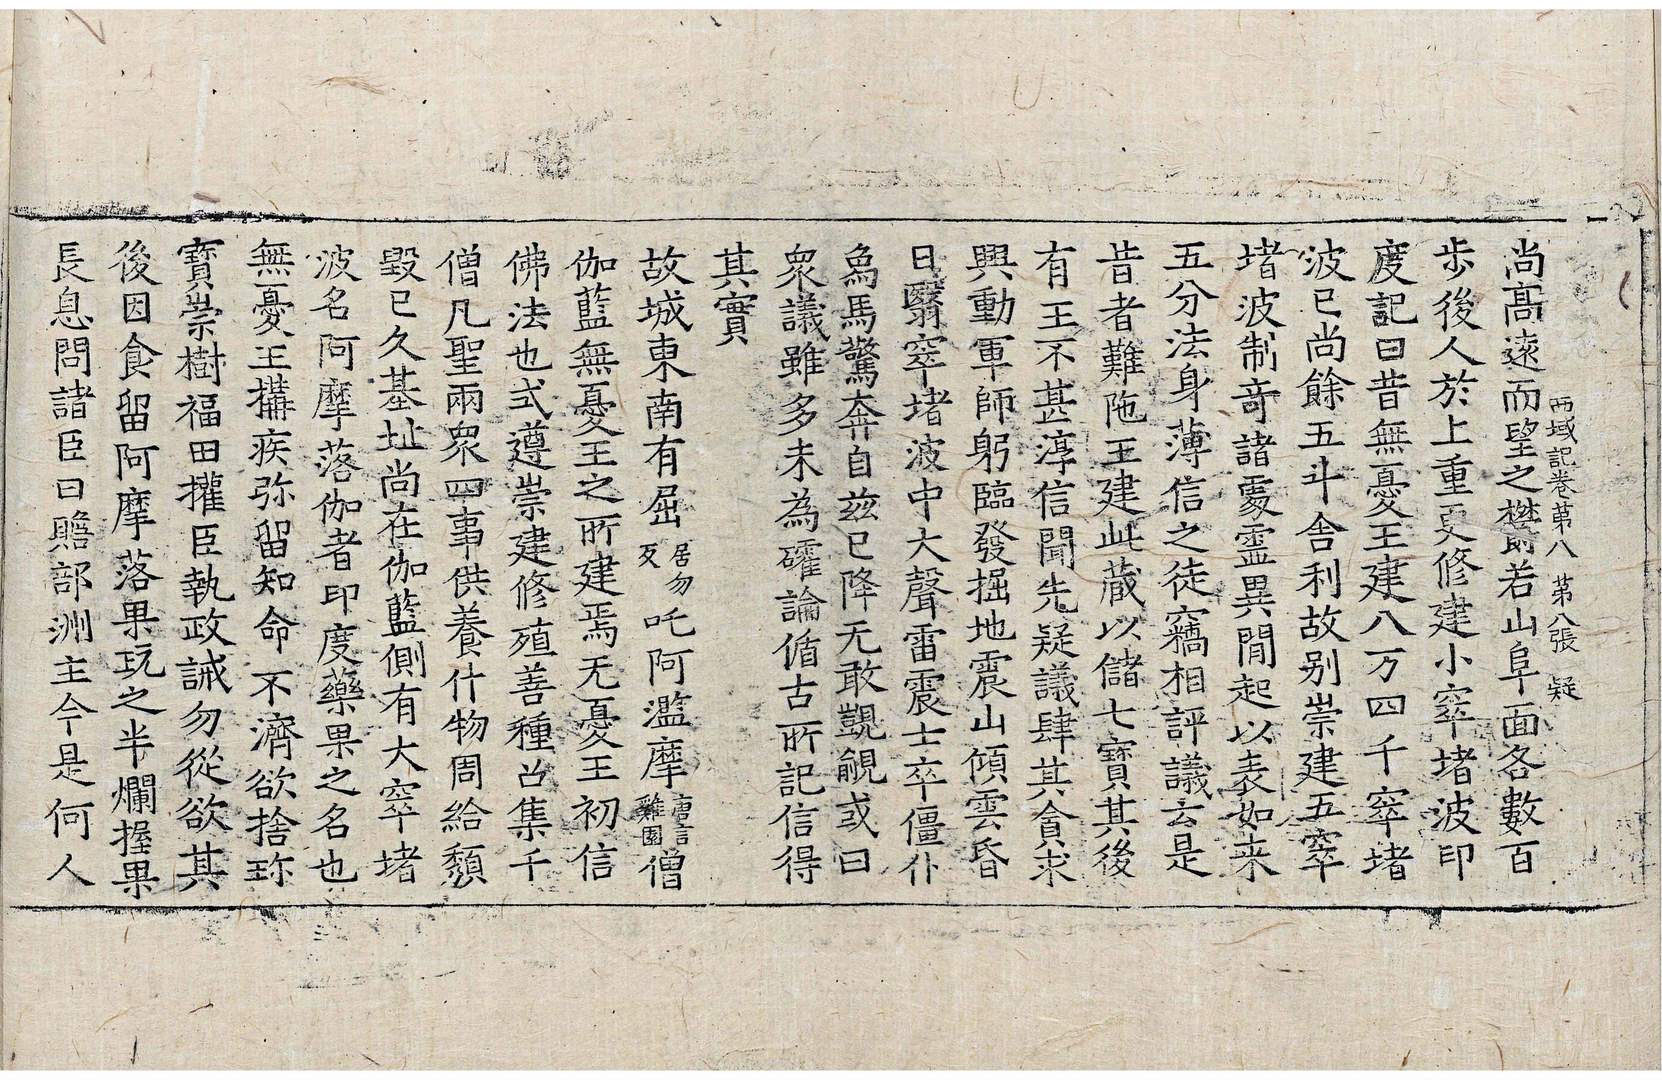 西域記卷第八 第八張 疑
尚高遠而望之欝若山阜面各數百
步後人於上重更修建小窣堵波印
度記曰昔無憂王建八万四千窣堵
波已尚餘五斗舍利故别崇建五窣
堵波制竒諸處靈異間起以表如来
五分法身薄信之徒竊相評議云是
昔者難陁王建此藏以儲七寶其後
有王不甚淳信聞先疑議肆其貪求
興動軍師躬臨發掘地震山傾雲昏
日翳窣堵波中大聲雷震士卒僵仆
象馬驚奔自兹已降无敢覬覦或曰
衆議雖多未為礭論循古所記信得
其實
故城東南有屈居勿反吒阿濫摩唐言雞園僧
伽藍無憂王之所建焉无憂王初信
佛法也式遵崇建修殖善種召集千
僧凡聖兩衆四事供養什物周給頽
毀已久基址尚在伽藍側有大窣堵
波名阿摩落伽者印度藥果之名也
無憂王搆疾弥留知命不濟欲捨珎
寶崇樹福田權臣執政誡勿從欲其
後因食留阿摩落果玩之半爛握果
長息問諸臣曰贍部洲主今是何人